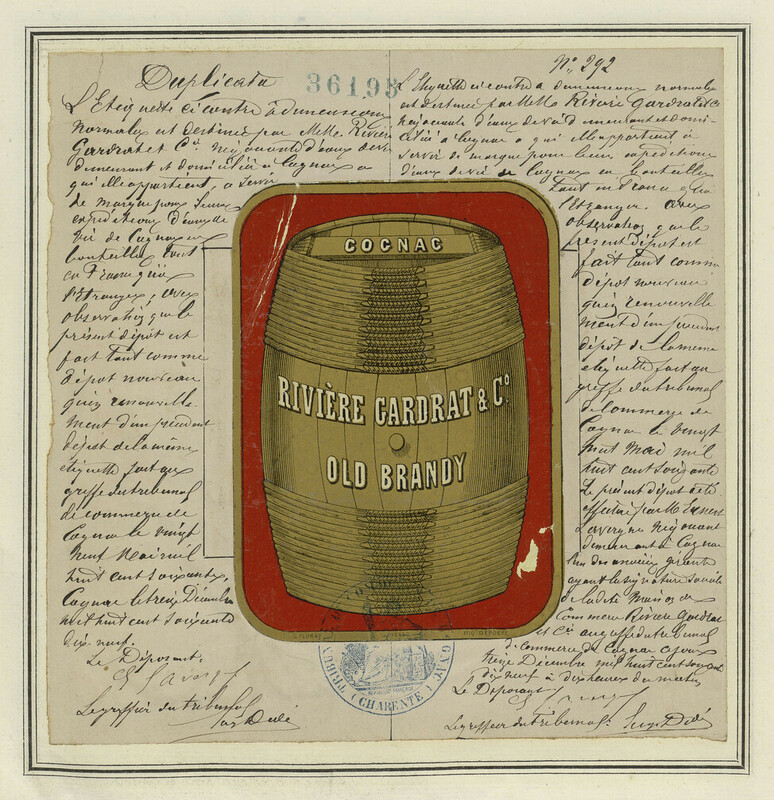 Duplicata
36193
L'Etiquette ci contre à dimensions
normales est destinée par Messrs Rivière
Gardrat et Cie négociants d'eaux de vie
demeurant et domiciliés à Cognac a
qui elle appartient, a servir
de marque pour leurs
expéditions d'eaux de
vie de Cognac en
bouteilles tant
en France qu'à
l'étranger, avec
observation que le
présent dépôt est
fait tant comme
dépôt nouveau
qu'en renouvelle
ment d'un précédent
dépôt de la même
étiquette fait au
greffe du tribunal
de commerce de
Cognac le vingt
neuf Mai mil
huit cent soixante,
Cognac le treize Décembre
mil huit cent soixante
dix-neuf.
Le Déposant,
Le greffier du tribunal
No 292
L'Etiquette ci contre a dimensions normales
est destinée par Messrs Rivière Gardrat & Cie
négociants d'eaux de vie demeurant et domi-
ciliés à Cognac a qui elle appartient à
servir de marque pour leurs expéditions
d'eaux de vie de Cognac en bouteilles
tant en France qu'à
l'étranger. avec
observation que le
présent dépôt est
fait tant comme
dépôt nouveau
qu'en renouvelle
ment d'un précédent
dépôt de la même
étiquette fait au
greffe du tribunal
de Commerce de
Cognac le vingt
neuf Mai mil
huit cent soixante
Le présent dépôt a été
effectué par M Ernest
Lavergne négociant
demeurant à Cognac
l'un des associés gérants
ayant la signature sociale
de la dite Maison de
Commerce Rivière Gardrat
et Cie au greffe du tribunal
de Commerce de Cognac ce jour
treize Décembre mil huit cent soixante
dix neuf à dix heures du matin
Le Déposant
Le greffier du tribunal
COGNAC
RIVIÈRE GARDRAT & Co.
OLD BRANDY
(CHARENTE)